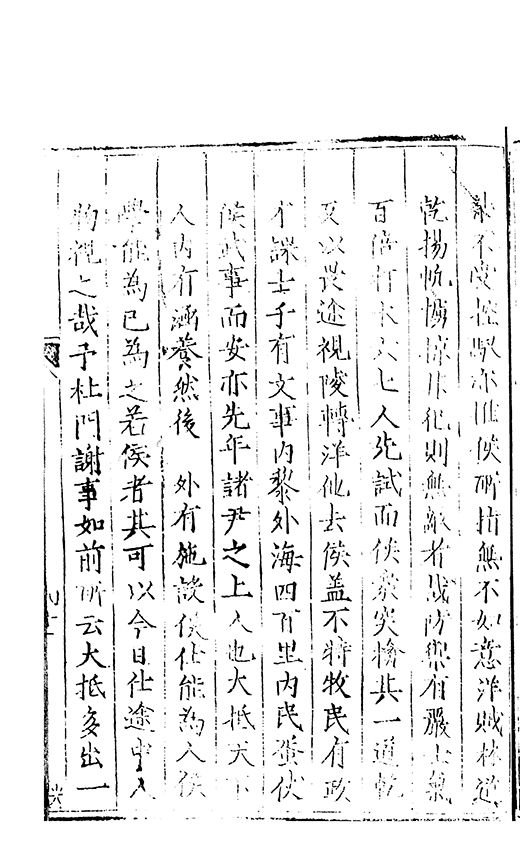 不受控馭亦惟侯所指無不如意洋賊林道
乾揚帆攪掠作犯則無敵者战防禦有嚴士氣
百倍打水六七人先試而侯家突擒其一道乾
夏以畏途視陵轉洋他去侯盖不特牧民有政
才課士子有文事内黎外海四百里内民蛋伏
侯武事而安亦先年諸尹之上人也大抵天下
人内有涵養然後外有施設侯仕能為人侯
學能為已為之若侯者其可以今日仕途中人
物視之哉予杜門謝事如前所云大抵多出一